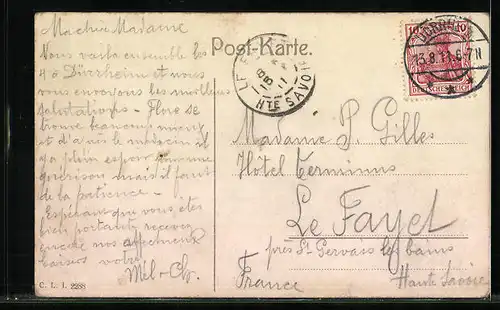 Ma chère Madame
Nous voilà ensemble les
4 à Dürrheim et nous
vous envoyons les meilleures
salutations - Flore se
trouve beaucoup mieux
et le médecin
a plein espoir
guérison mais il faut
de la patience -
Espérant que vous êtes
bien portante recevez
encore nos affectueux
baisers votre
Mél-Ch.
C. L. I. 2286
Post-Karte.
LE FAYET
HTE SAVOIE
DÜRRHEIM
15.8.11.6-7N
10 10
DEUTSCHES REICH
Madame P. Gilles
Hôtel Terminus
Le Fayet
près St Gervais les bains
Haute Savoie
France